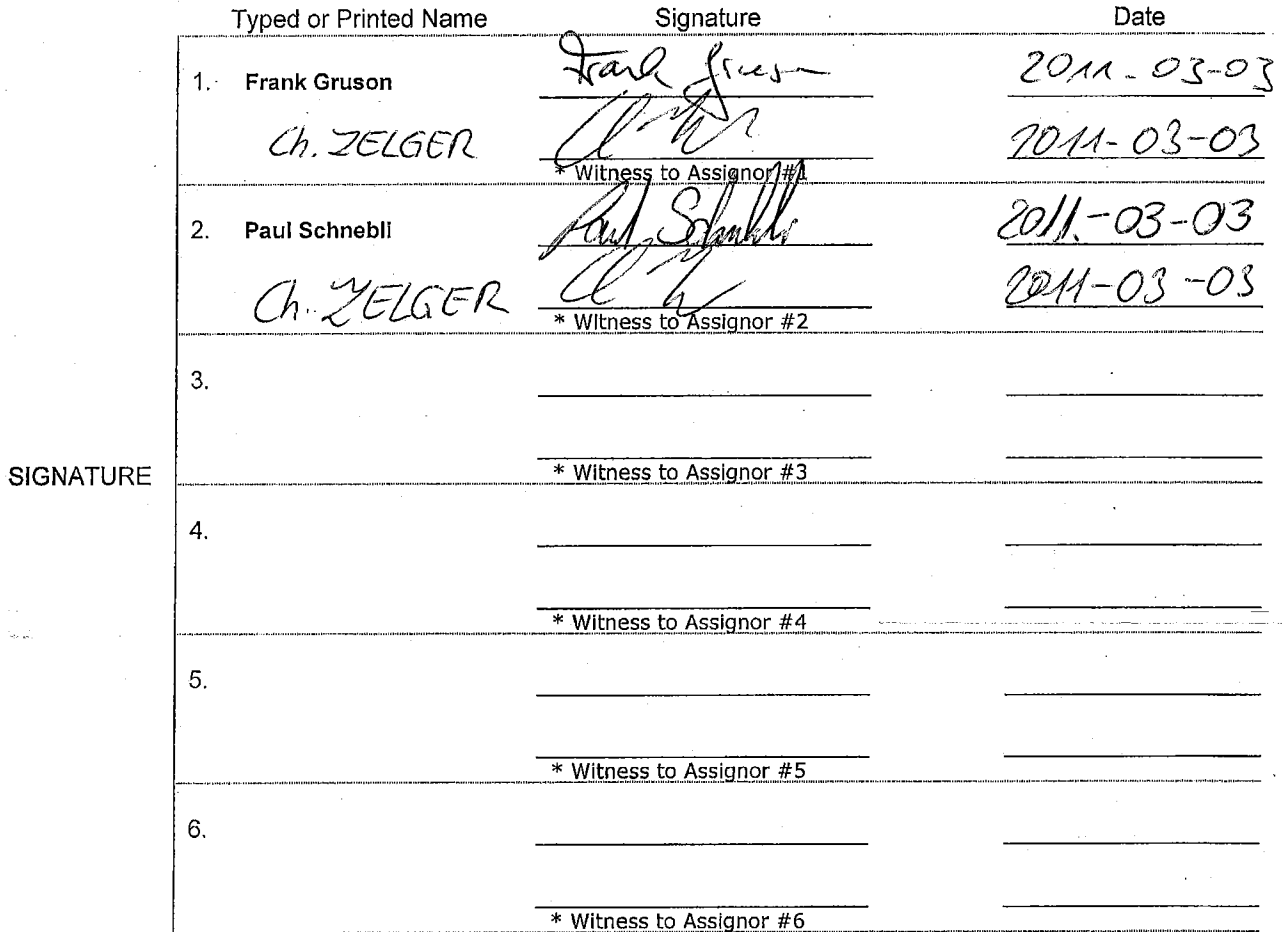 Typed or Printed Name Signature Date
1. Frank Gruson Frank Gruson 2011-03-03
Ch. ZELGER 2011-03-03
* Witness to Assignor #1
2. Paul Schnebli Paul Schnebli 2011-03-03
Ch. ZELGER 2011-03-03
* Witness to Assignor #2
3.
SIGNATURE * Witness to Assignor #3
4.
* Witness to Assignor #4
5.
* Witness to Assignor #5
6.
* Witness to Assignor #6